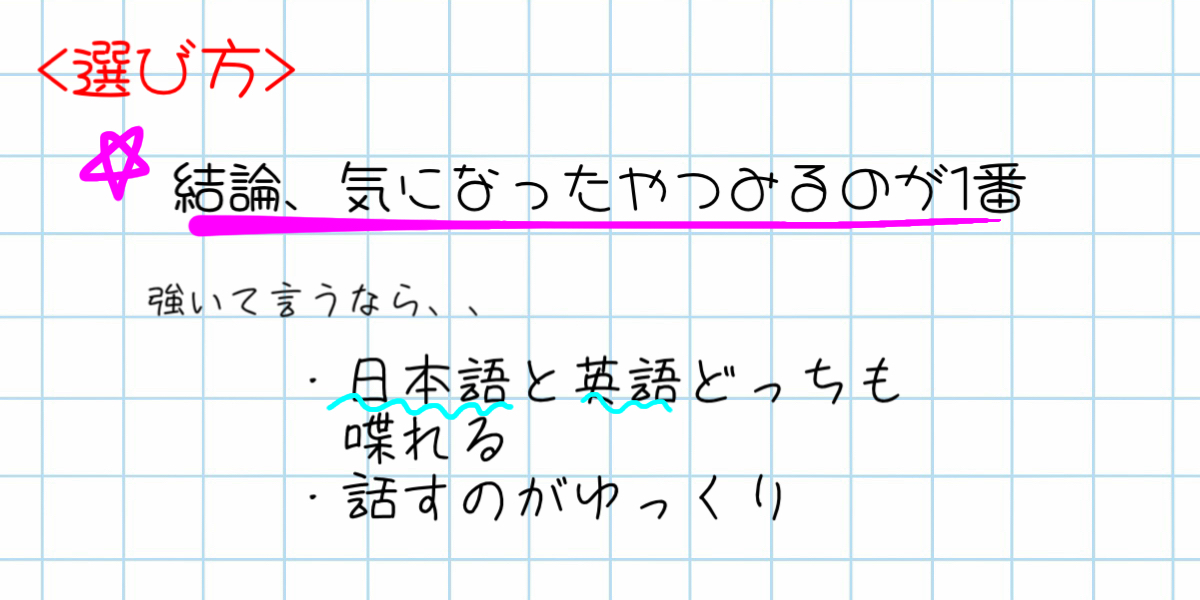 <選び方>
結論、気になったやつみるのが1番
強いて言うなら、、
・日本語と英語どっちも
喋れる
・話すのがゆっくり